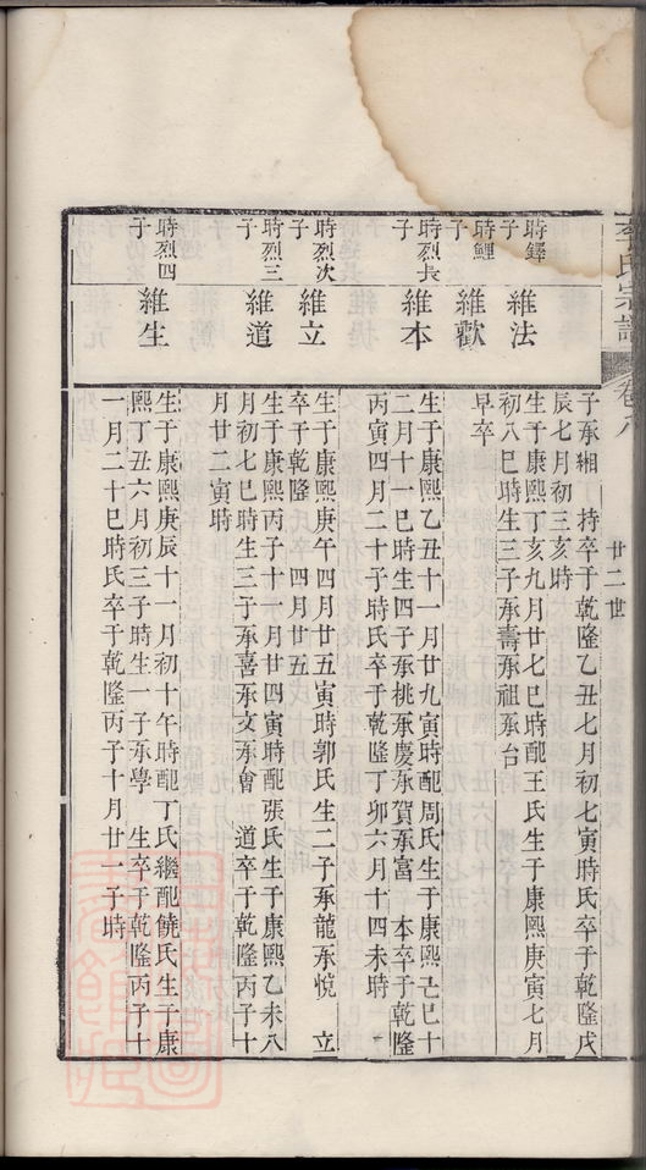 李氏宗譜
卷八
廿二世
子承緗 持卒于乾隆乙丑七月初七寅時氏卒于乾隆戌
辰七月初三亥時
時鐸子
維法
生于康熙丁亥九月廿七巳時配王氏生于康熙庚寅七月
初八巳時生三子承壽承祖承台
時鯉子
維歡
早卒
時烈長子
維本
生于康熙乙丑十一月廿九寅時配周氏生于康熙己巳十
二月十一巳時生四子承桃承慶承賀承富 本卒于乾隆
丙寅四月二十子時氏卒于乾隆丁卯六月十四未時
時烈次子
維立
生于康熙庚午四月廿五寅時郭氏生二子承龍承悅 立
卒于乾隆 四月廿五
時烈三子
維道
生于康熙丙子十一月廿四寅時配張氏生于康熙乙未八
月初七巳時生三子承喜承文承會 道卒于乾隆丙子十
月廿二寅時
時烈四子
維生
生于康熙庚辰十一月初十午時配丁氏繼配饒氏生于康
熙丁丑六月初三子時生一子承學 生卒于乾隆丙子十
一月二十巳時氏卒于乾隆丙子十月廿一子時